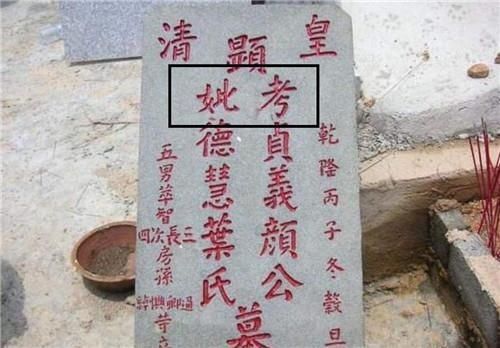 皇清
顯
考貞義顏公
妣德慧葉氏
墓
乾隆丙子冬穀旦
五男萃智
三長次四
房孫
立